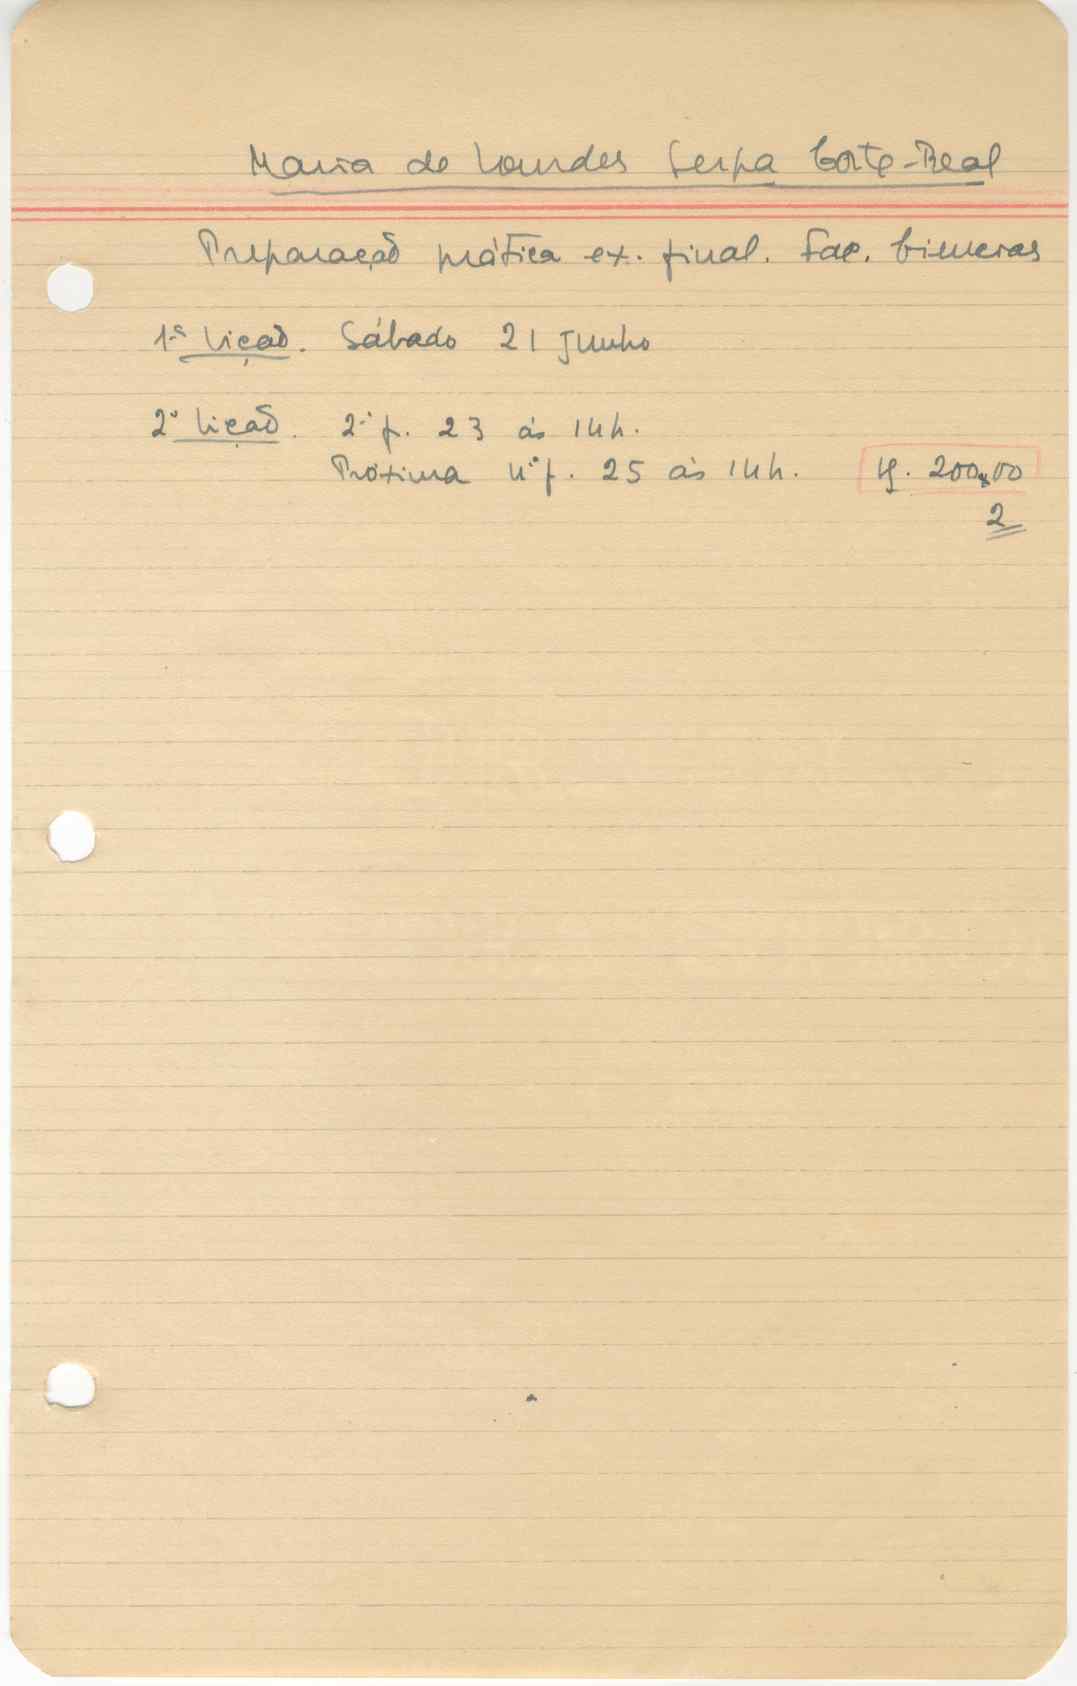 Maria de Lourdes Serpa Corte-Real
Preparação prática ex. final. Fac. Ciências
1ª Lição. Sábado 21 Junho
2ª Lição. 2ª f. 23 às 14h.
Próxima 4ª f. 25 às 14h. 200$00
2